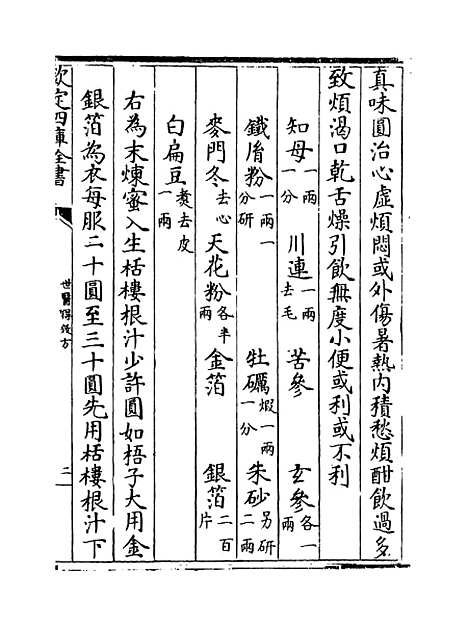 真味圓治心虛煩悶或外傷暑熱内積愁煩酣飲過多
致煩渴口乾舌燥引飲無度小便或利或不利
知母一兩一分 川連一兩去毛 苦參 玄參各一兩
鐵胤粉一兩一分研 牡礪煆一兩一分 朱砂另研二兩
麥門冬去心 天花粉各半兩 金箔 銀箔二百片
白扁豆煑去皮一兩
右為末煉蜜入生栝樓根汁少許圓如梧子大用金
銀箔為衣每服二十圓至三十圓先用栝樓根汁下
欽定四庫全書
世醫得效方
二